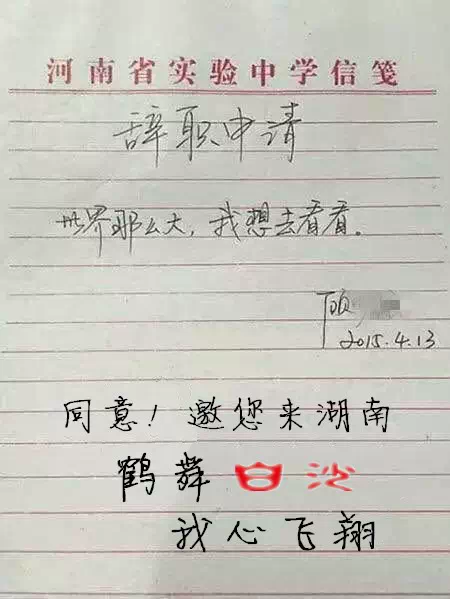 河南省实验中学信笺
辞职申请
世界那么大，我想去看看。
顾
2015.4.13
同意！邀您来湖南
鹤舞白沙
我心飞翔